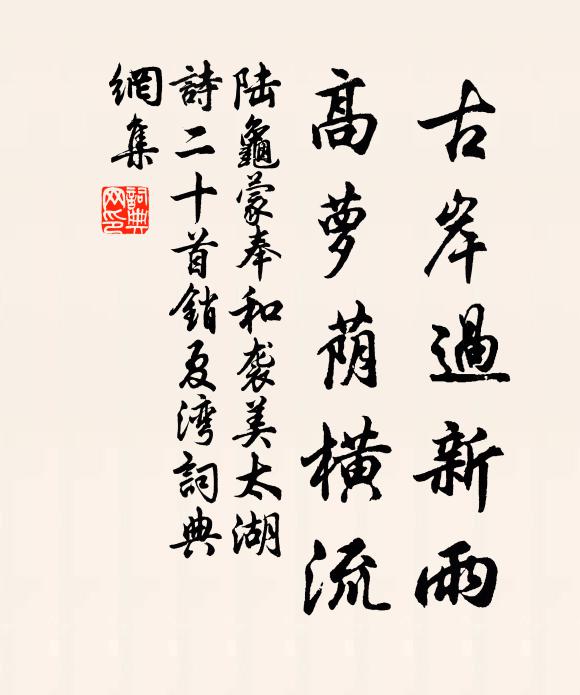 古岸過新雨
高萝荫橫流
陆龜蒙奉和袭美太湖
詩二十首銷夏湾詞典
網集
詞典网印